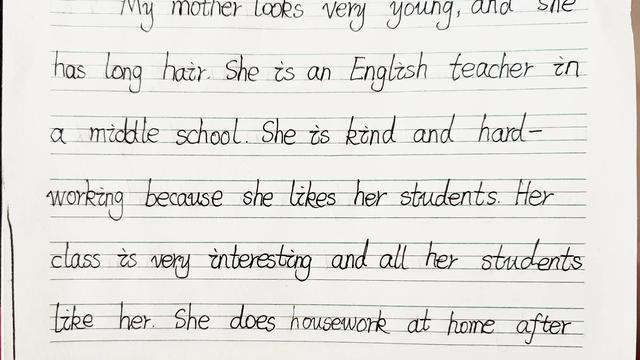 My mother looks very young, and she
has long hair. She is an English teacher in
a middle school. She is kind and hard-
working because she likes her students. Her
class is very interesting and all her students
like her. She does housework at home after